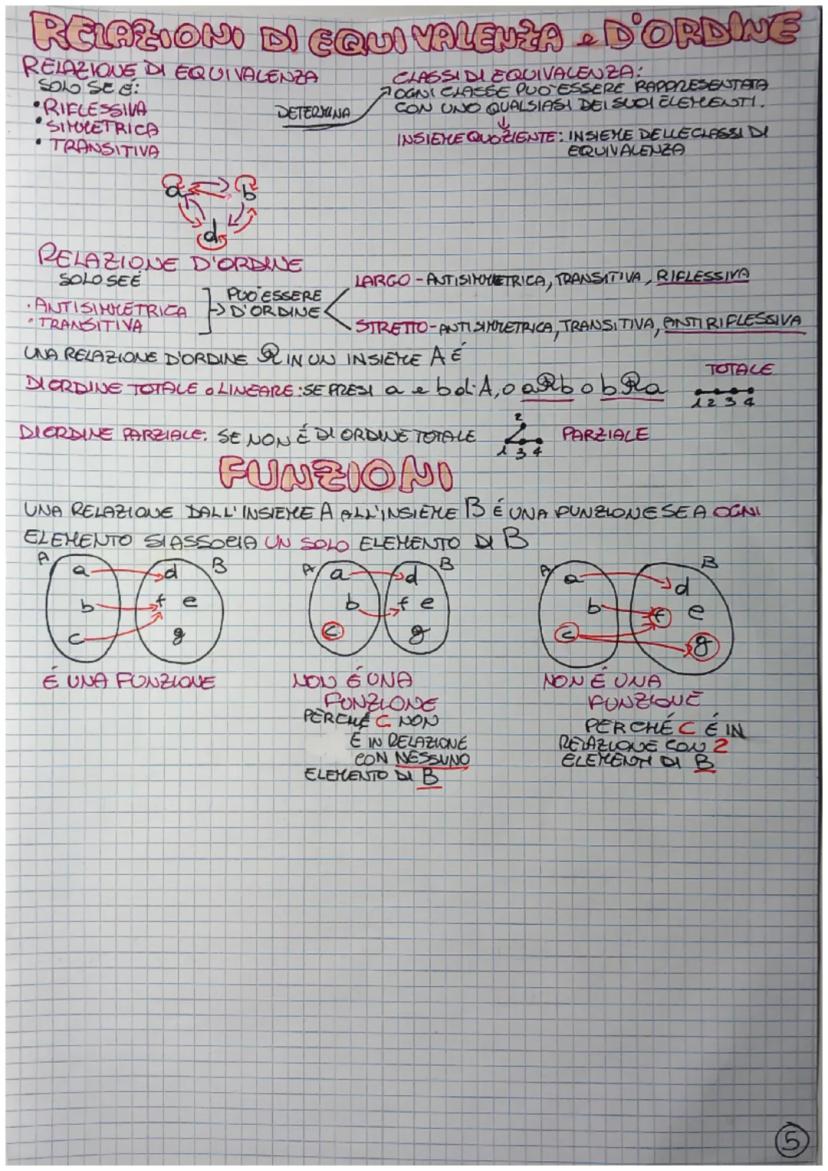 RELAZIONI DI EQUIVALENZA e D'ORDINE
RELAZIONE DI EQUIVALENZA
SOLO SE È:
• RIFLESSIVA
• SIMMETRICA
• TRANSITIVA
DETERMINA
CLASSI DI EQUIVALENZA:
OGNI CLASSE PUO' ESSERE RAPPRESENTATA
CON UNO QUALSIASI DEI SUOI ELEMENTI.
INSIEME QUOZIENTE: INSIEME DELLE CLASSI DI
EQUIVALENZA
a b
d
RELAZIONE D'ORDINE
SOLO SE É
• ANTISIMMETRICA
• TRANSITIVA
PUO' ESSERE
D'ORDINE
LARGO - ANTISIMMETRICA, TRANSITIVA, RIFLESSIVA
STRETTO - ANTISIMMETRICA, TRANSITIVA, ANTIRIFLESSIVA
UNA RELAZIONE D'ORDINE R IN UN INSIEME A É
DI ORDINE TOTALE o LINEARE: SE PRESI a e b di A, o aRb o bRa
TOTALE
1 2 3 4
DI ORDINE PARZIALE: SE NON É DI ORDINE TOTALE
2
1 3 4
PARZIALE
FUNZIONI
UNA RELAZIONE DALL'INSIEME A ALL'INSIEME B É UNA FUNZIONE SE A OGNI
ELEMENTO SI ASSOCIA UN SOLO ELEMENTO DI B
A B
a d
b f e
c g
É UNA FUNZIONE
A B
a d
b f e
c g
NON É UNA
FUNZIONE
PERCHÉ C NON
É IN RELAZIONE
CON NESSUNO
ELEMENTO DI B
A B
a d
b f e
c g
NON É UNA
FUNZIONE
PERCHÉ C É IN
RELAZIONE CON 2
ELEMENTI DI B
5